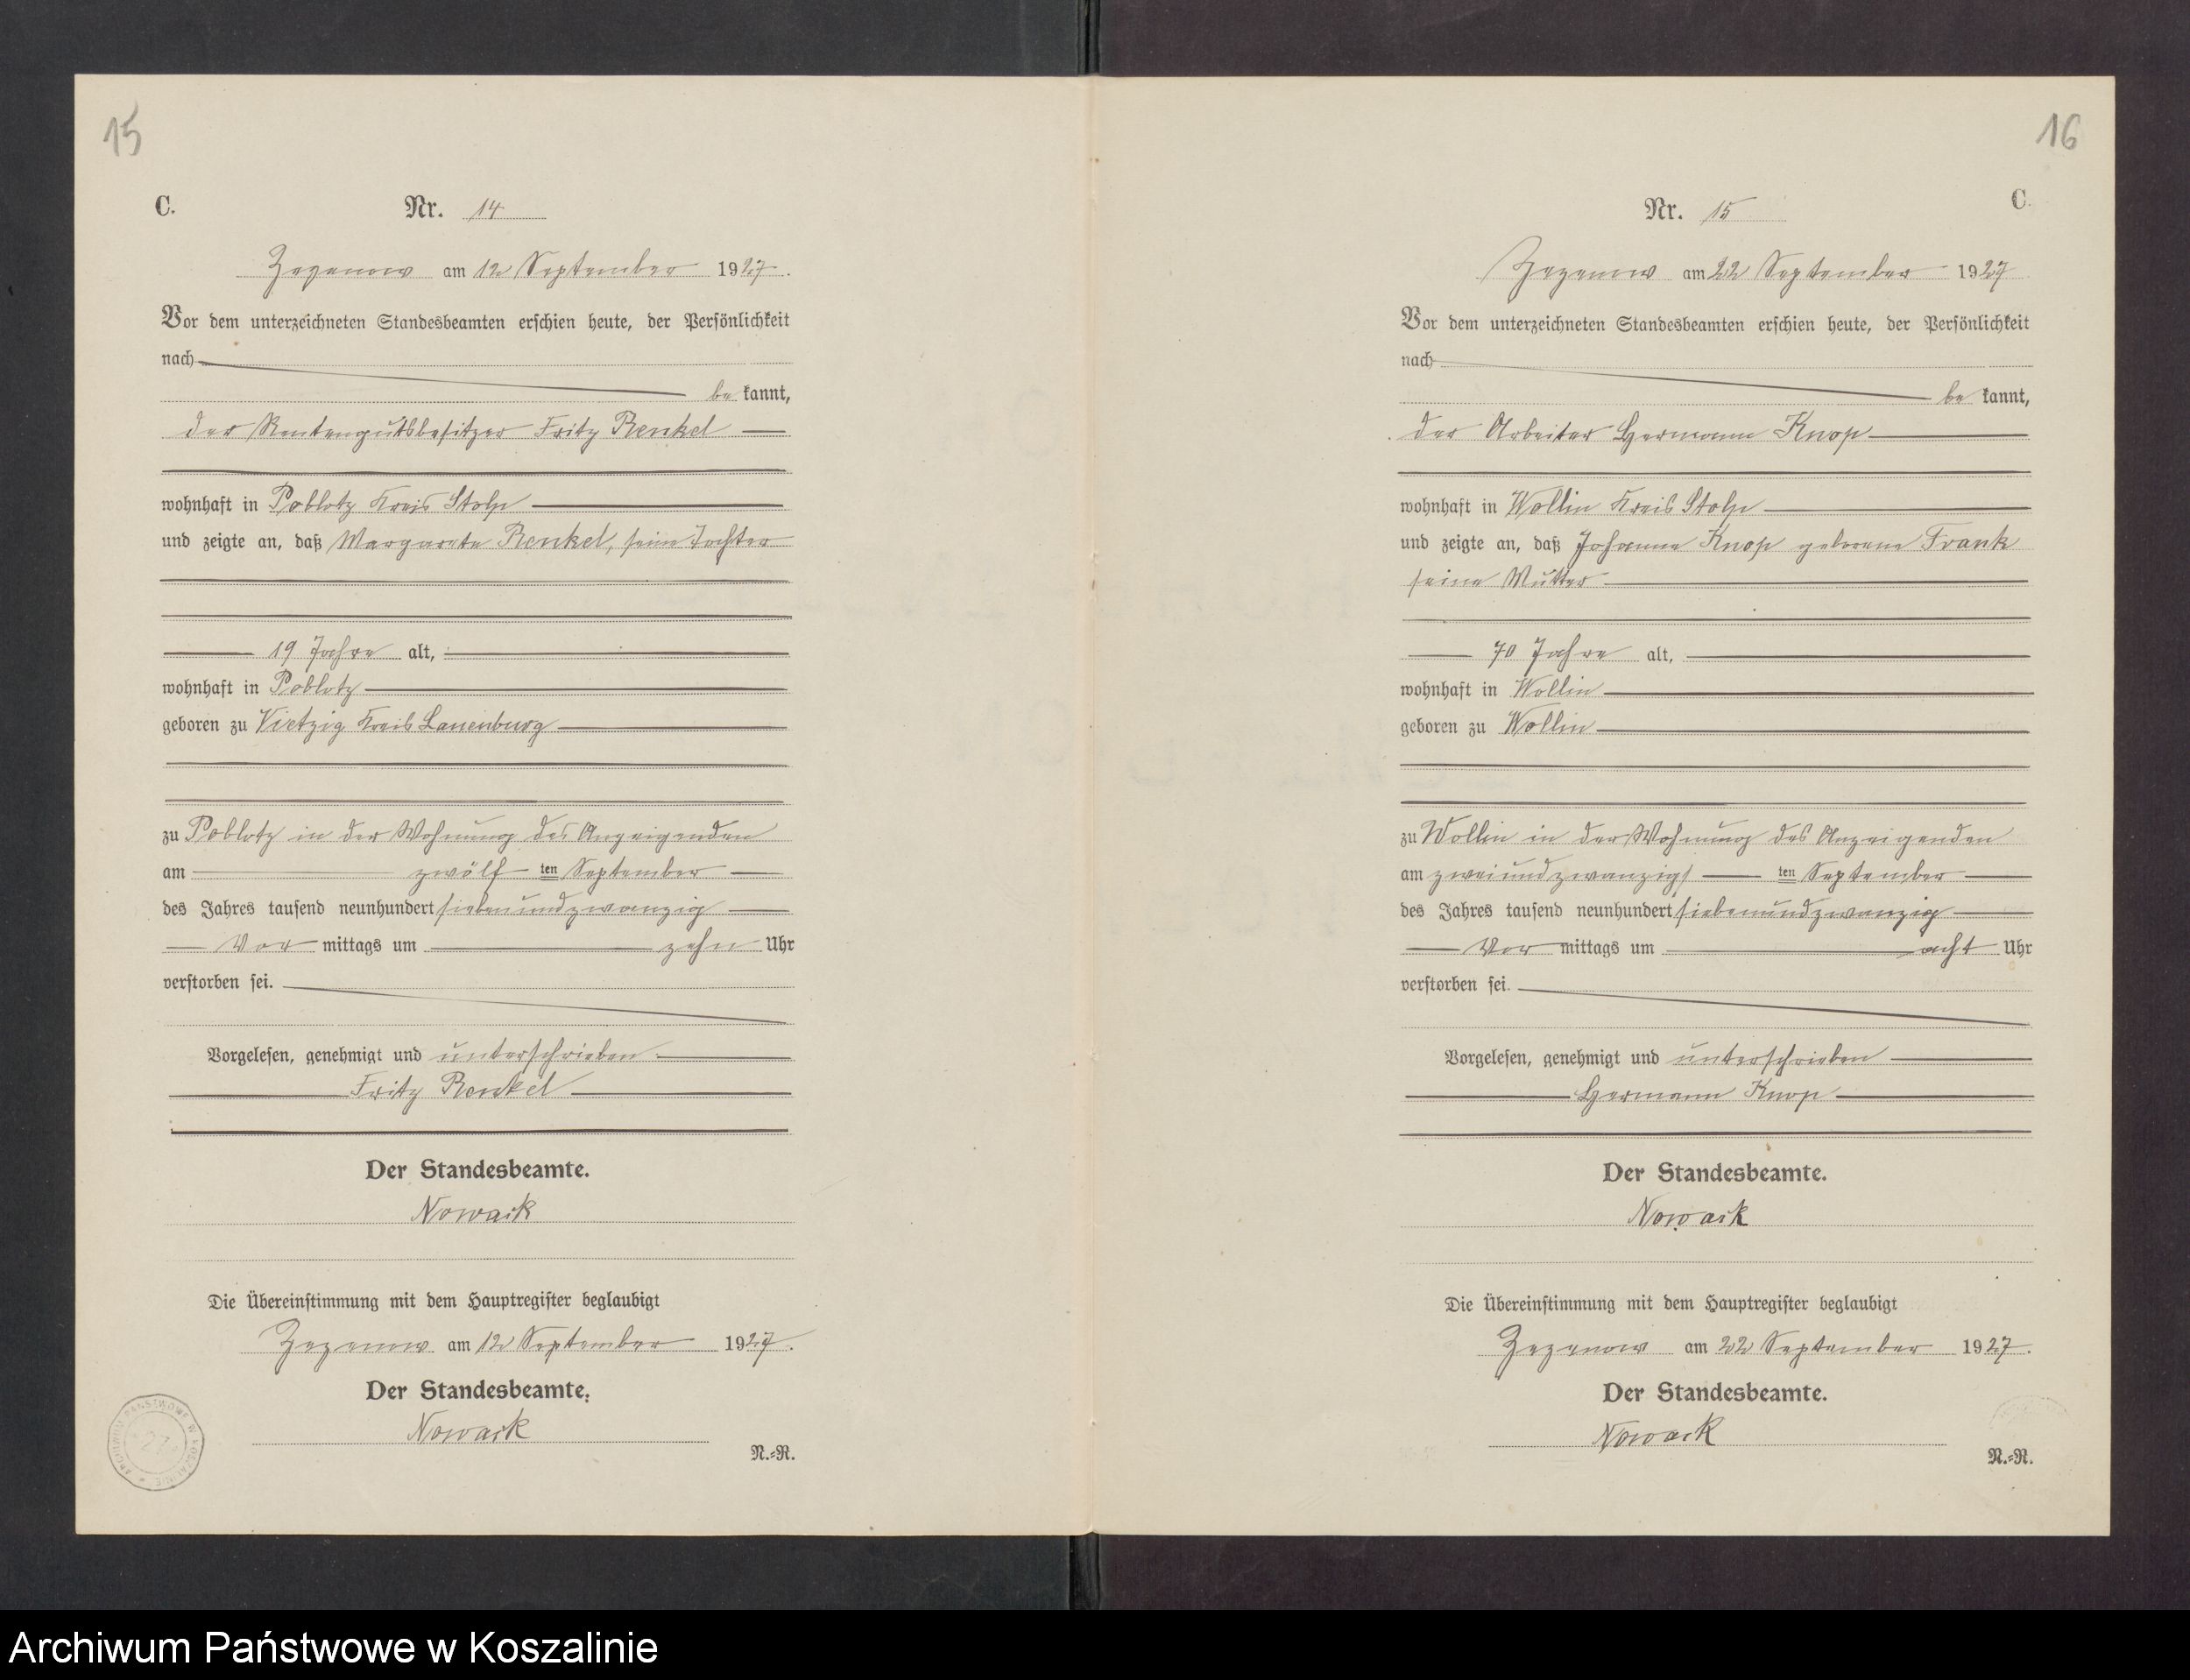 15
C.
Nr. 14
Zezenow am 12 September 1927.
Vor dem unterzeichneten Standesbeamten erschien heute, der Persönlichkeit
nach
be kannt,
der Rentengutsbesitzer Fritz Renkel
wohnhaft in Poblotz Kreis Stolp
und zeigte an, daß Margarete Renkel, seine Tochter
19 Jahre alt,
wohnhaft in Poblotz
geboren zu Vietzig Kreis Lauenburg
zu Poblotz in der Wohnung des Anzeigenden
am zwölf ten September
des Jahres tausend neunhundert siebenundzwanzig
Vor mittags um zehn Uhr
verstorben sei.
Vorgelesen, genehmigt und unterschrieben.
Fritz Renkel
Der Standesbeamte.
Nowack
Die Übereinstimmung mit dem Hauptregister beglaubigt
Zezenow am 12 September 1927.
Der Standesbeamte.
Nowack
N.=R.
ARCHIWUM PAŃSTWOWE W KOSZALINIE
16
C.
Nr. 15
Zezenow am 22 September 1927
Vor dem unterzeichneten Standesbeamten erschien heute, der Persönlichkeit
nach
be kannt,
der Arbeiter Hermann Knop
wohnhaft in Wollin Kreis Stolp
und zeigte an, daß Johanne Knop geborene Frank
seine Mutter
70 Jahre alt,
wohnhaft in Wollin
geboren zu Wollin
zu Wollin in der Wohnung des Anzeigenden
am zweiundzwanzigs ten September
des Jahres tausend neunhundert siebenundzwanzig
Vor mittags um acht Uhr
verstorben sei.
Vorgelesen, genehmigt und unterschrieben
Hermann Knop
Der Standesbeamte.
Nowack
Die Übereinstimmung mit dem Hauptregister beglaubigt
Zezenow am 22 September 1927.
Der Standesbeamte.
Nowack
N.=R.
Archiwum Państwowe w Koszalinie